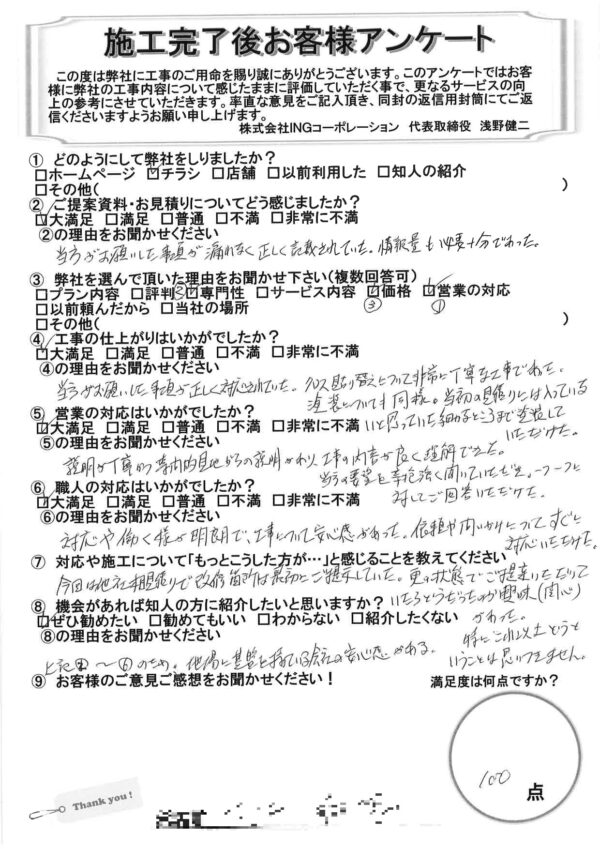 施工完了後お客様アンケート
この度は弊社に工事のご用命を賜り誠にありがとうございます。このアンケートではお客
様に弊社の工事内容について感じたままに評価していただく事で、更なるサービスの向
上の参考にさせていただきます。率直な意見をご記入頂き、同封の返信用封筒にてご返
信くださいますようお願い申し上げます。
株式会社INGコーポレーション 代表取締役 浅野健二
① どのようにして弊社をしりましたか?
□ホームページ ☑チラシ □店舗 □以前利用した □知人の紹介
□その他( )
② ご提案資料・お見積りについてどう感じましたか?
☑大満足 □満足 □普通 □不満 □非常に不満
②の理由をお聞かせください
当方がお願いした事項が漏れなく正しく記載されていた。情報量も必要十分であった。
③ 弊社を選んで頂いた理由をお聞かせ下さい(複数回答可)
□プラン内容 □評判 ☑専門性 □サービス内容 ☑価格 ☑営業の対応
□以前頼んだから □当社の場所 ③ ①
□その他( )
④ 工事の仕上がりはいかがでしたか?
☑大満足 □満足 □普通 □不満 □非常に不満
④の理由をお聞かせください
当方がお願いした事項が正しく対応されていた。クロス貼り替えについて非常に丁寧な工事であった。
塗装についても同様。当初の見積りには入っている
⑤ 営業の対応はいかがでしたか?
☑大満足 □満足 □普通 □不満 □非常に不満 いと思っていた細かるところまで塗装して
いただけた。
⑤の理由をお聞かせください
説明が丁寧かつ専門的見地からの説明があり、工事の内容が良く理解できた。
当方の要望を辛抱強く聞いていただき、一つ一つに
対してご回答いただけた。
⑥ 職人の対応はいかがでしたか?
☑大満足 □満足 □普通 □不満 □非常に不満
⑥の理由をお聞かせください
対応や働く様が明朗で、工事について安心感があった。依頼や問いかけについてすぐに
対応いただけた。
⑦ 対応や施工について「もっとこうした方が…」と感じることを教えてください
今回は他社相見積りで改修箇所は最初にご提示していた。更の状態でご提案いただいて
いたらどうだったのか興味(関心)
があった。
特にこれ以上どうと
いうことは思いつきません。
⑧ 機会があれば知人の方に紹介したいと思いますか?
☑ぜひ勧めたい □勧めてもいい □わからない □紹介したくない
⑧の理由をお聞かせください
上記 ～⑥のため。地場に基盤を持っている会社の安心感がある。
⑨ お客様のご意見ご感想をお聞かせください!
満足度は何点ですか?
100 点
Thank you!